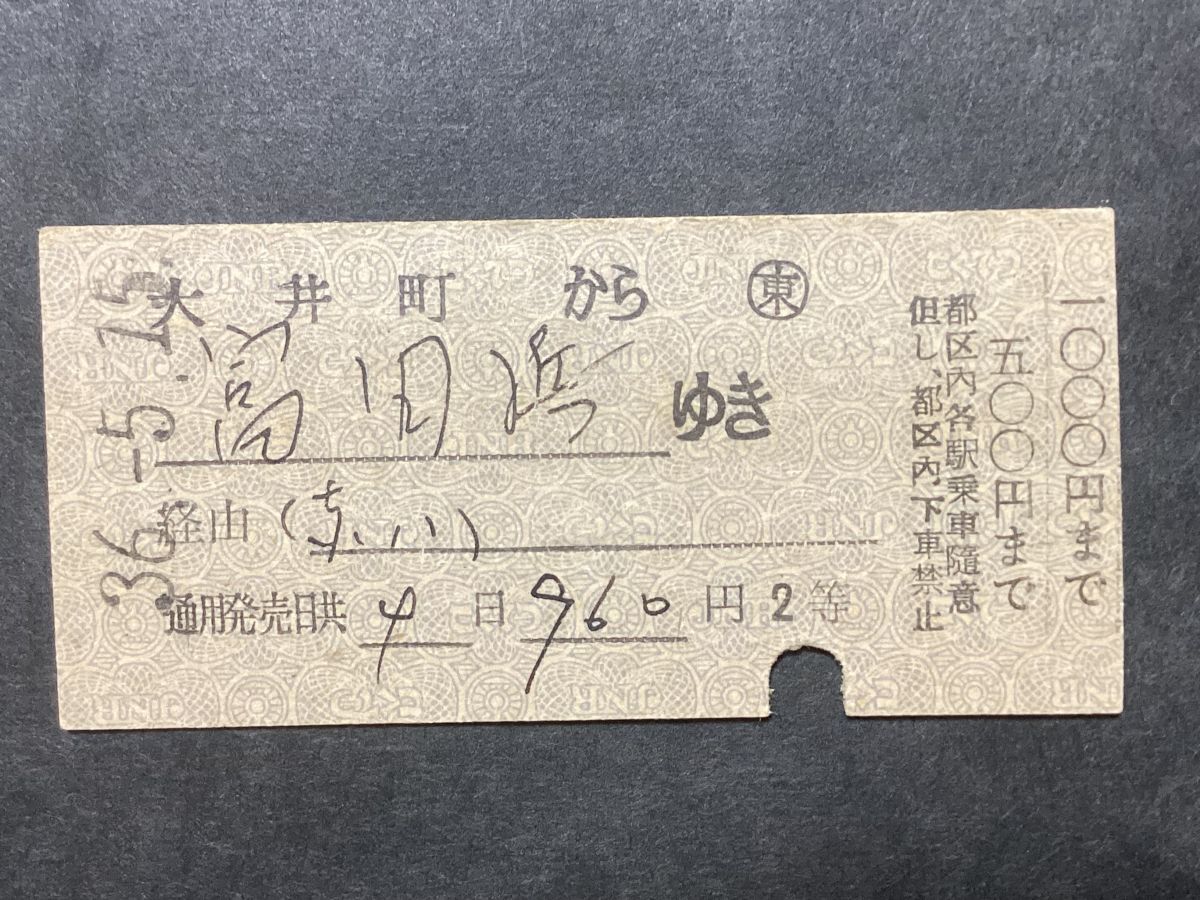 36.-5.15.
大井町から ㊍東
富田浜ゆき
経由
通用発売日共 4日 960円 2等
一〇〇〇円まで
五〇〇円まで
都区内各駅乗車随意
但し、都区内下車禁止
JNR